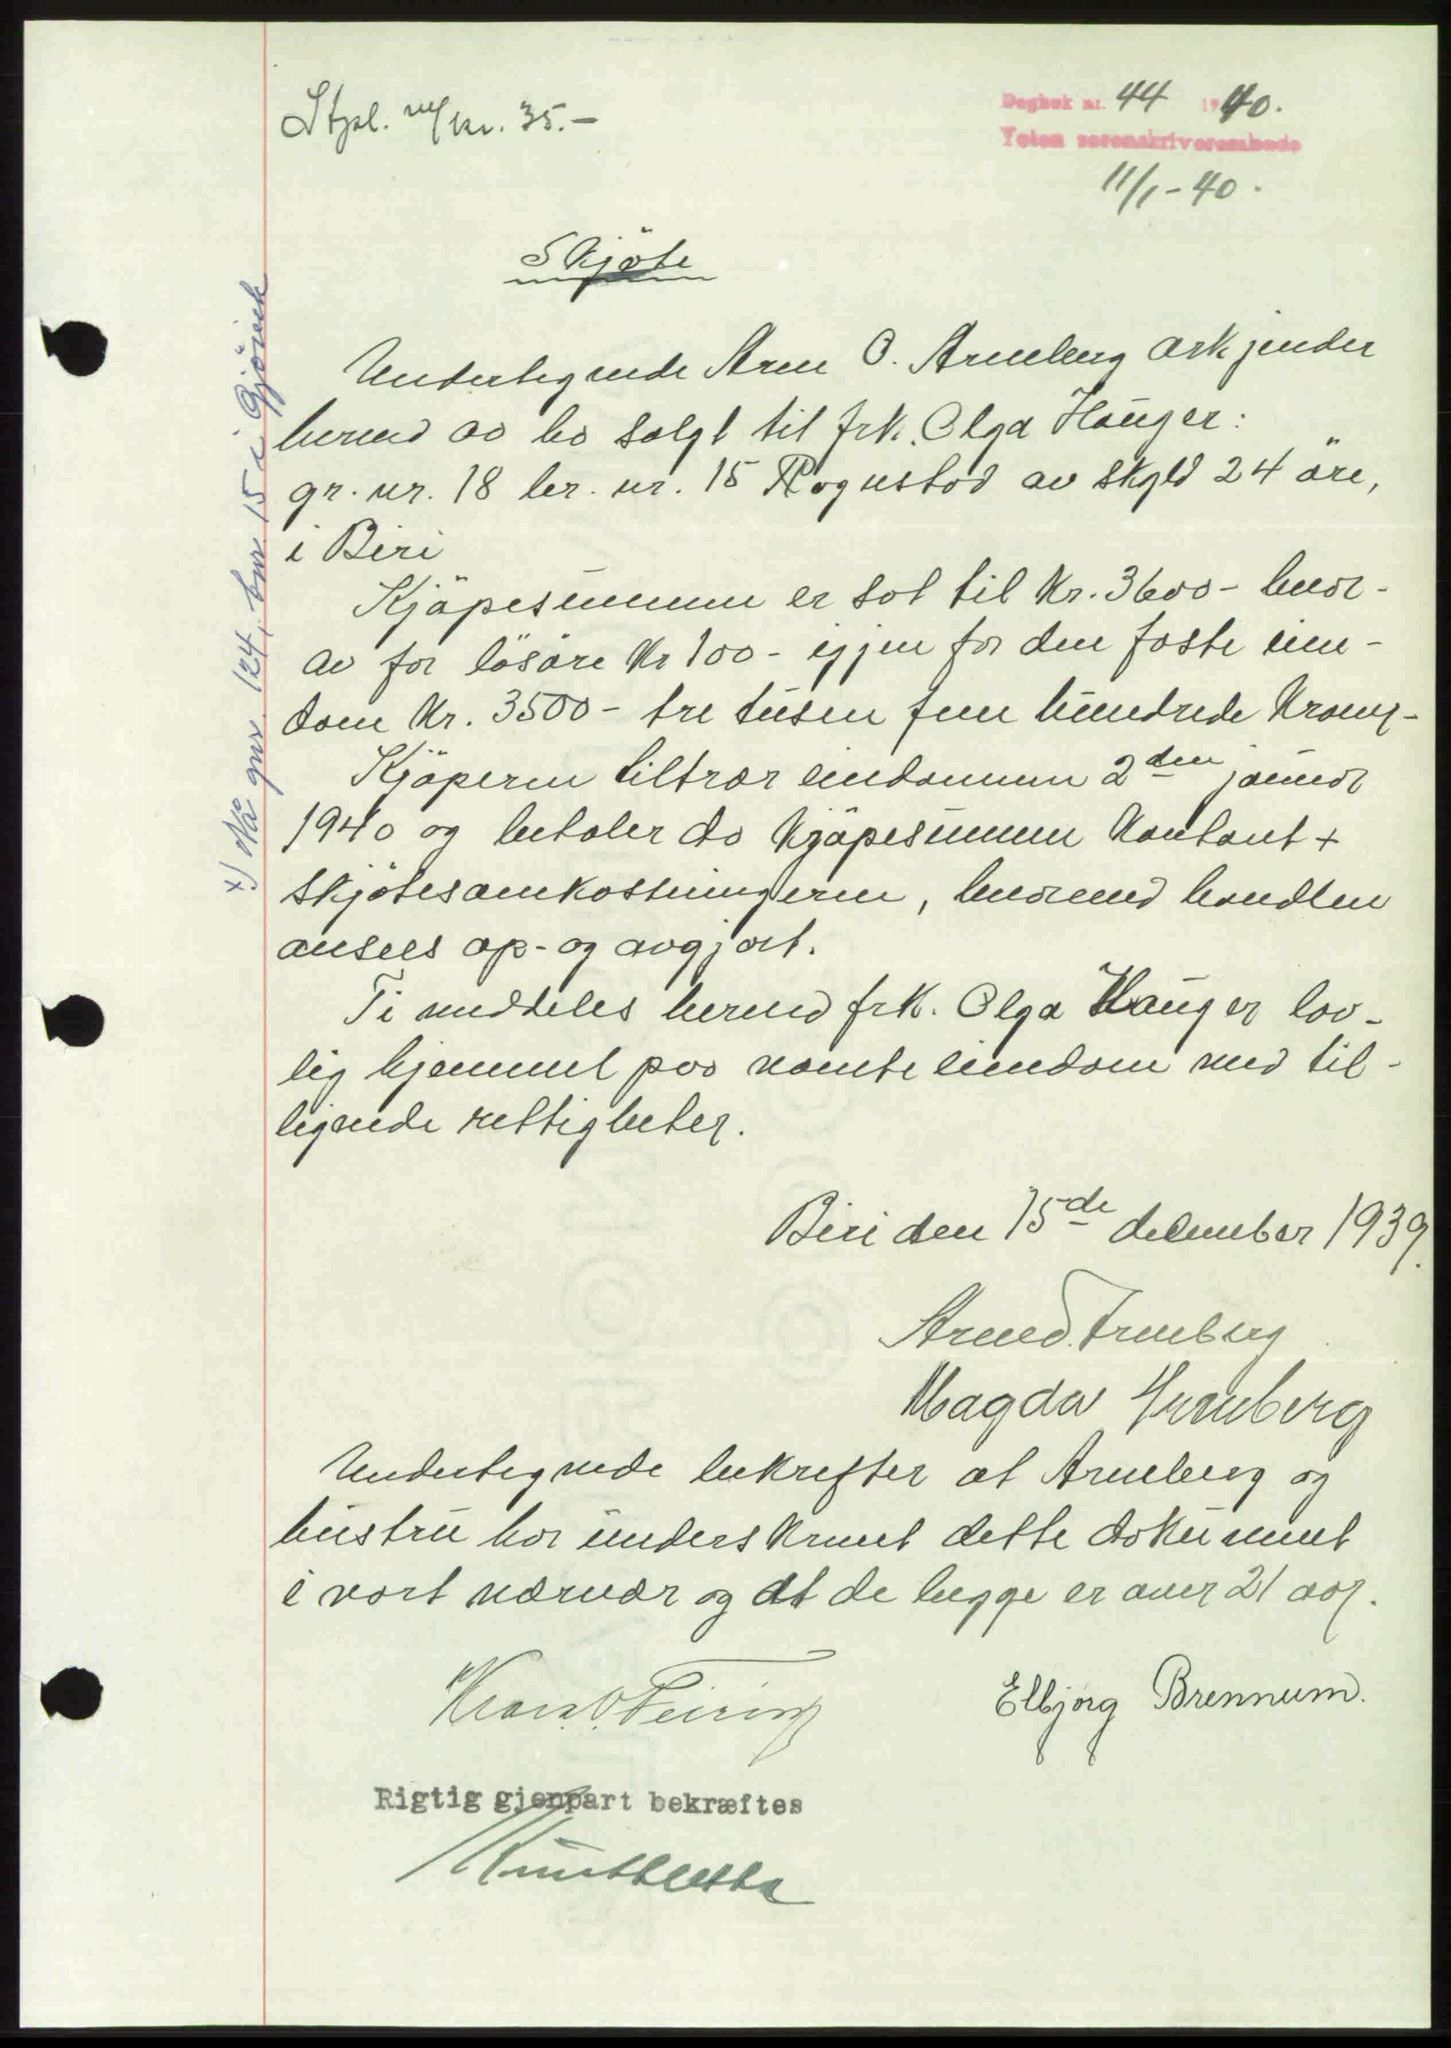 Stpl. m/kr. 35.-
Dagbok nr. 44 1940.
Toten sorenskriverembede
11/1-40.
Skjöte
Undertegnede Arne O. Arneberg erkjender
herved aa ha solgt til frk. Olga Hauger:
gr. nr. 18 br. nr. 15 Rognstad av skyld 24 öre,
i Biri
Kjöpesummen er sat til Kr. 3600- hvor-
av for lösöre Kr 100- igjen for den faste eien-
dom Kr. 3500- tre tusen fem hundrede Kroner-
Kjöperen tiltrær eiendommen 2den januar
1940 og betaler da Kjöpesummen Kontant +
skjötesomkostningerne, hvormed handlen
ansees op- og avgjort.
Ti meddeles herved frk. Olga Hauger lov-
lig hjemmel paa nævnte eiendom med til-
liggende rettigheter.
Biri den 15de december 1939.
Arne O. Arneberg
Magda Arneberg
Undertegnede bekrefter at Arneberg og
hustru har underskrevet dette dokument
i vort nærvær og at de begge er over 21 aar.
O. Feiring
Elbjørg Brennum.
Rigtig gjenpart bekræftes
x) Nå gnr. 124, bnr. 15 i Gjövik